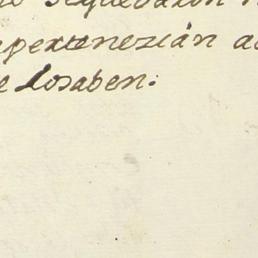 sequedaron
pertenezian a
e Losaben.